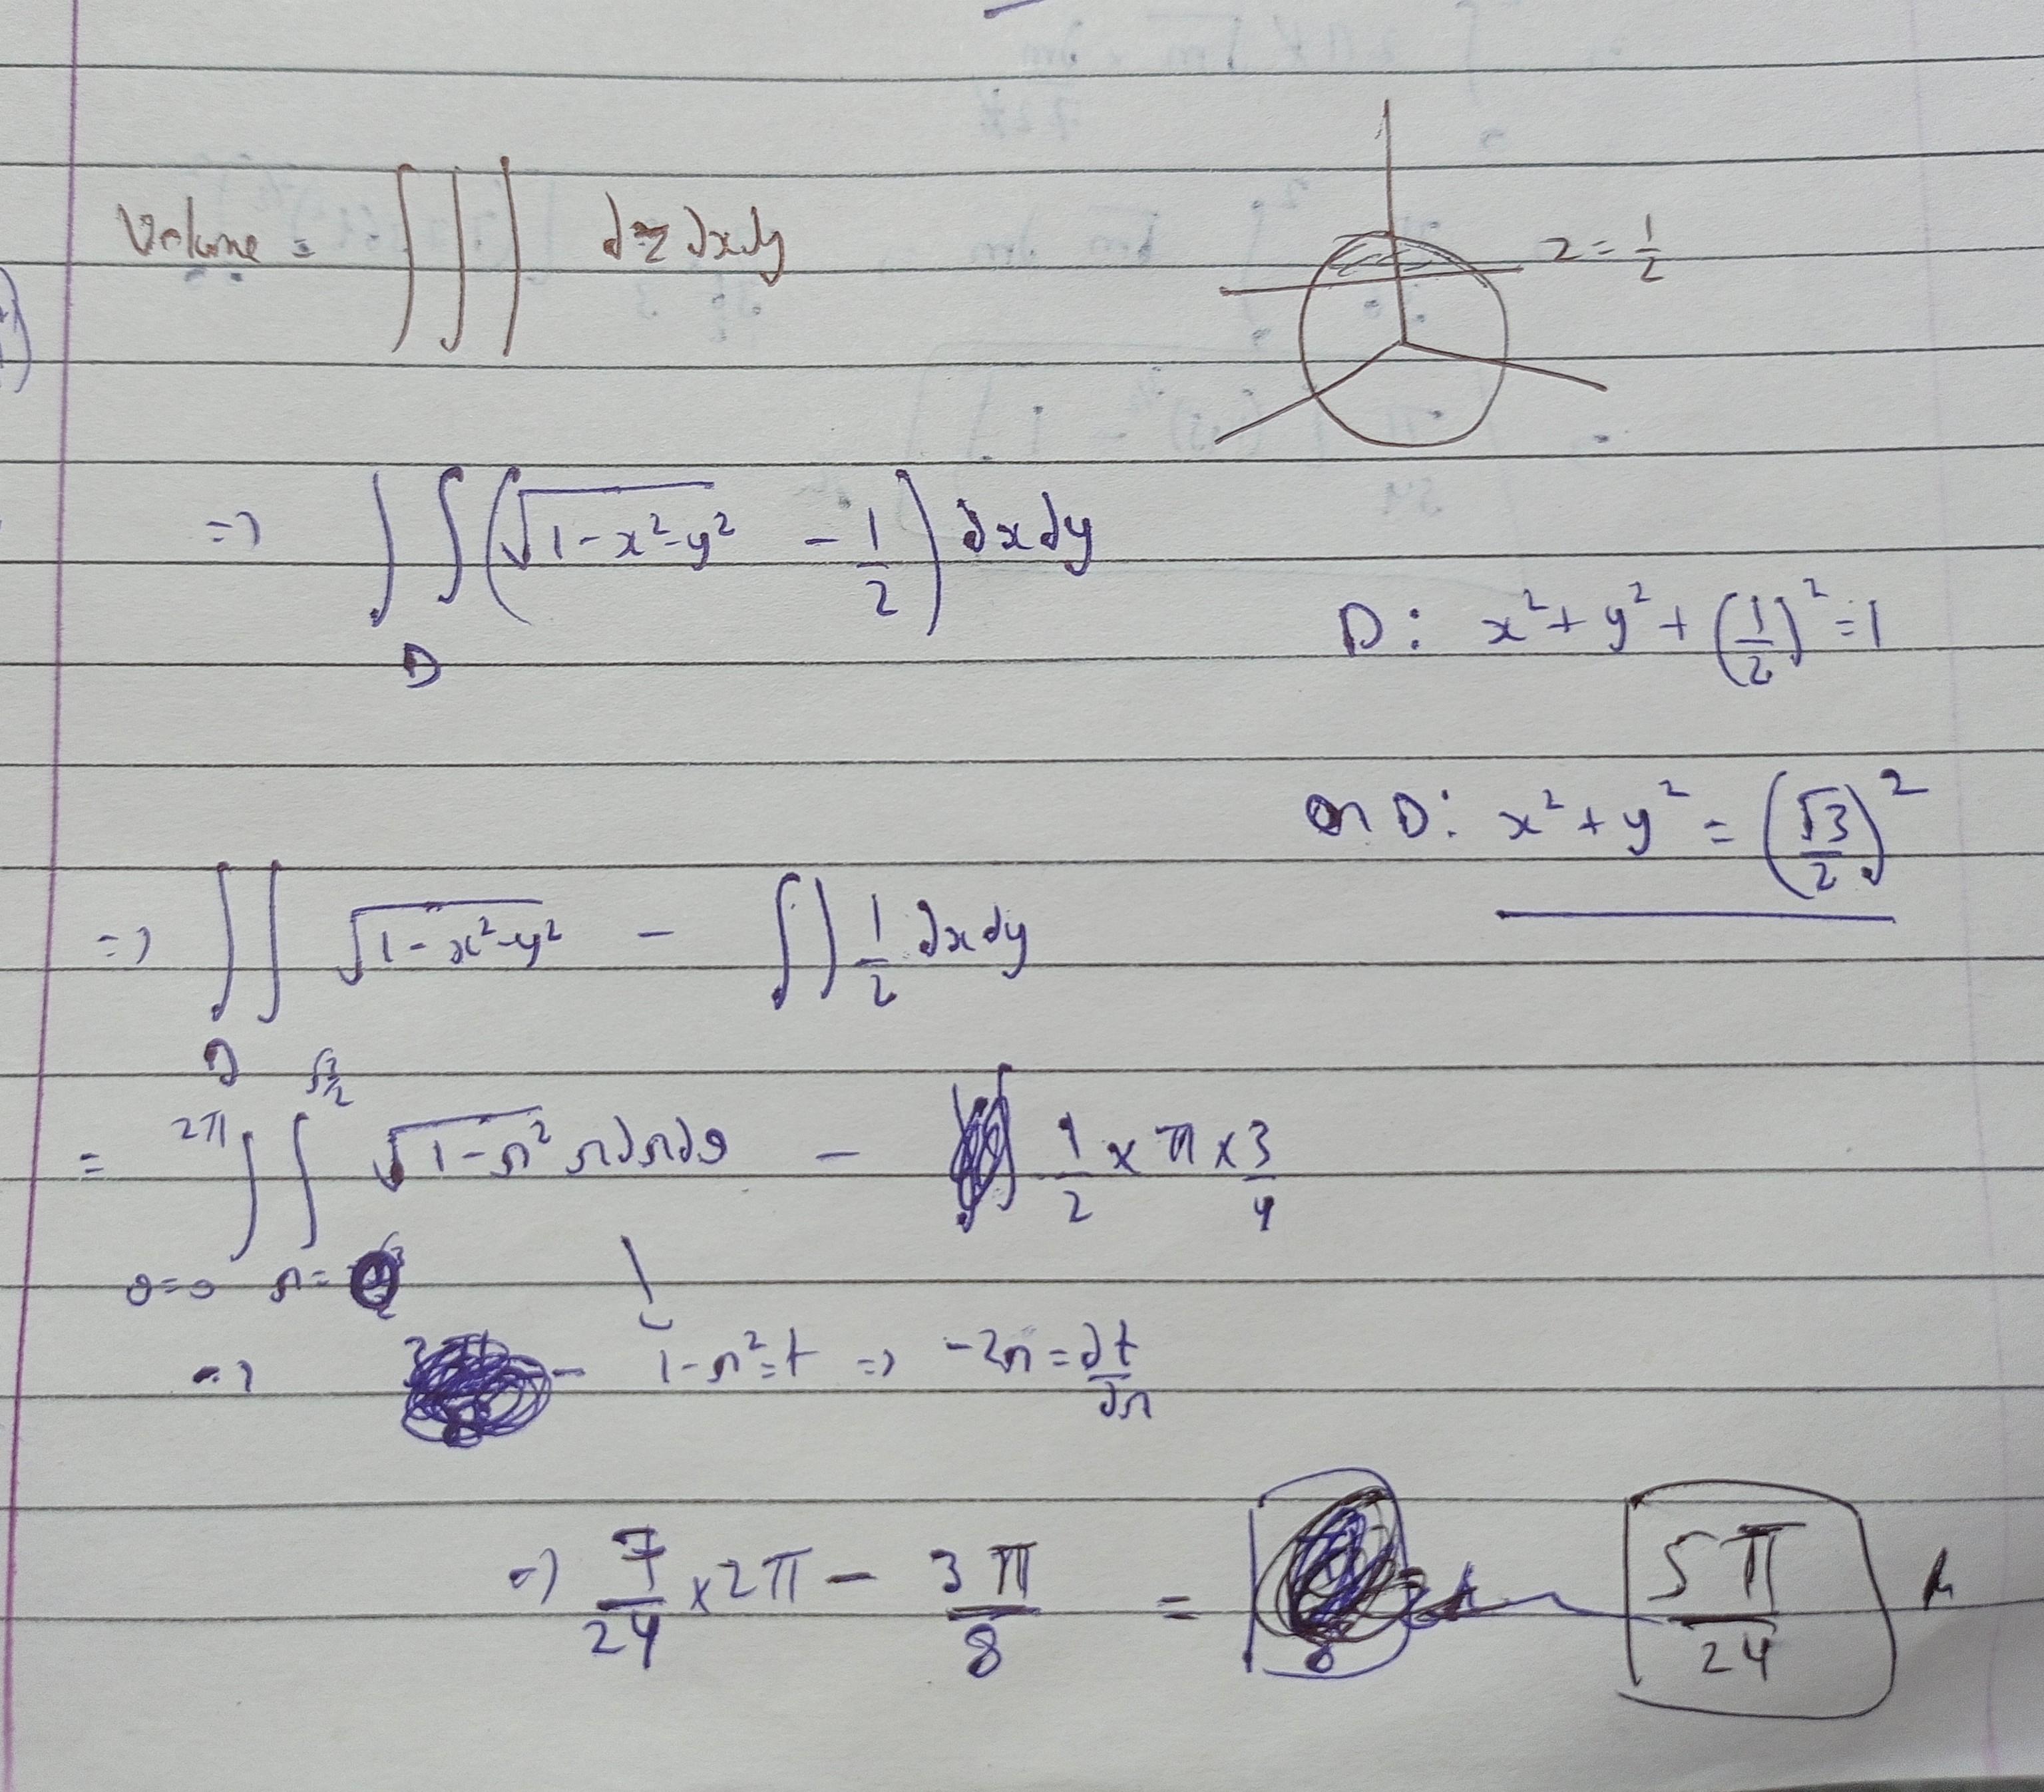 Volume = ∫∫∫ dz dx dy
z = 1/2
=> ∫∫_D (√(1-x²-y²) - 1/2) dx dy
D: x² + y² + (1/2)² = 1
on D: x² + y² = (√3/2)²
=> ∫∫_D √(1-x²-y²) - ∫∫ 1/2 dx dy
= ∫_{θ=0}^{2π} ∫_{r=0}^{√3/2} √(1-r²) r dr dθ - 1/2 × π × 3/4
=> 1-r² = t => -2r = dt/dr
=> 7/24 × 2π - 3π/8 = 5π/24